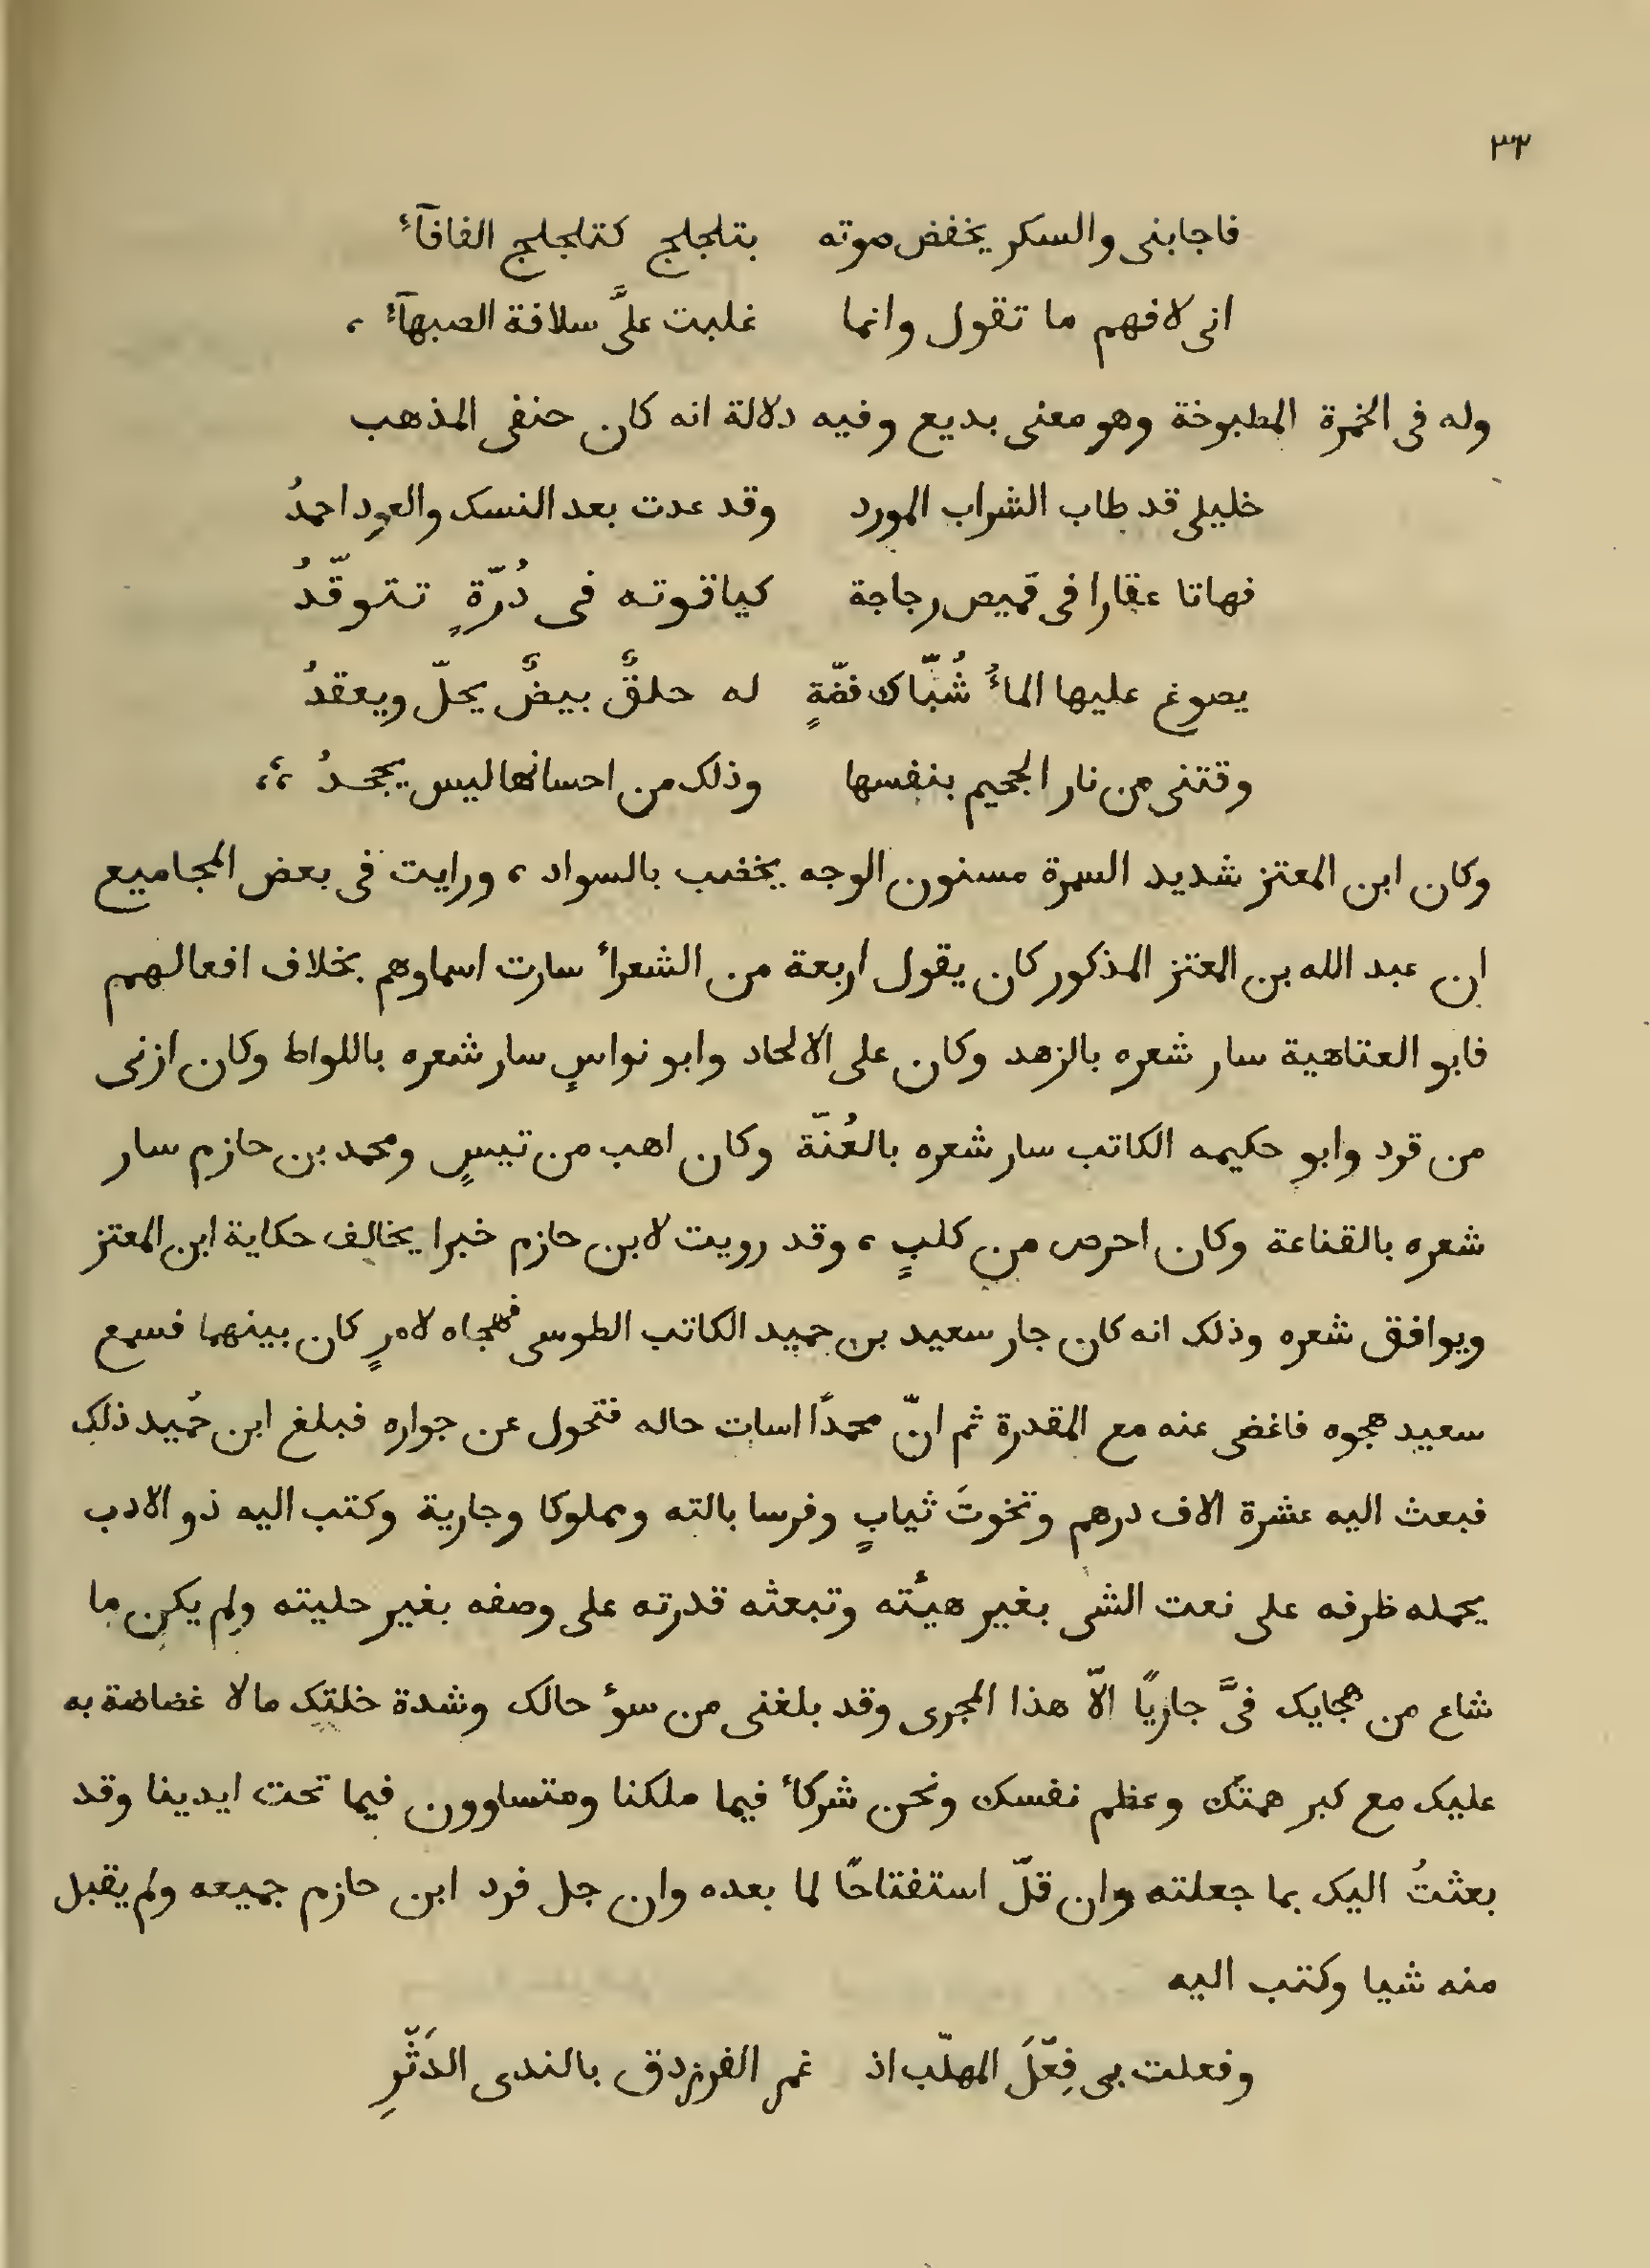 ٣٢
فاجابنى والسكر يخفض صوته بتلجلج كتلجلج الفافآءِ
انى لافهم ما تقول وانما غلبت علىَّ سلافة الصبهآءِ ،
وله فى الخمرة المطبوخة وهو معنى بديع وفيه دلالة انه كان حنفى المذهب
خليلى قد طاب الشراب المورد وقد عدت بعد النسك والعود احمدُ
فهاتا عقارا فى قميص رجاجة كياقوته فى دُرّةٍ تتوقّدُ
يصوغ عليها الماءُ شُبّاك فضّةٍ له حلقٌ بيضٌ يحلّ ويعقدُ
وقتنى من نار الجحيم بنفسها وذلك من احسانها ليس يجحدُ ،،
وكان ابن المعتز شديد السمرة مسنون الوجه يخضب بالسواد ، ورايت فى بعض المجاميع
ان عبد الله بن المعتز المذكور كان يقول اربعة من الشعراء سارت اسماوهم بخلاف افعالهم
فابو العتاهية سار شعره بالزهد وكان على الالحاد وابو نواسٍ سار شعره باللواط وكان ازنى
من قرد وابو حكيمه الكاتب سار شعره بالعُنّة وكان اهب من تيسٍ ومحمد بن حازم سار
شعره بالقناعة وكان احرص من كلبٍ ، وقد رويت لابن حازم خبرا يخالف حكاية ابن المعتز
ويوافق شعره وذلك انه كان جار سعيد بن حميد الكاتب الطوسى فهجاه لامرٍ كان بينهما فسمع
سعيد هجوه فاغضى عنه مع المقدرة ثم انّ محمدًا اسات حاله فتحول عن جواره فبلغ ابن حُميد ذلك
فبعث اليه عشرة الاف درهم وتخوتَ ثيابٍ وفرسا بالته ومملوكا وجارية وكتب اليه ذو الادب
يحمله ظرفه على نعت الشى بغير هيئته وتبعثه قدرته على وصفه بغير حليته ولم يكن ما
شاع من هجايك فىَّ جاريًا الاّ هذا المجرى وقد بلغنى من سوء حالك وشدة خلتك مالا غضاضة به
عليك مع كبر همتك وعظم نفسك ونحن شركاء فيما ملكنا ومتساوون فيما تحت ايدينا وقد
بعثتُ اليك بما جعلته وان قلّ استفتاحًا لما بعده وان جل فرد ابن حازم جميعه ولم يقبل
منه شيا وكتب اليه
وفعلت بى فِعّلَ المهلّب اذ غمر الفرزدق بالندى الدَثّرِ